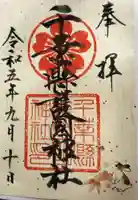 奉拝
千葉縣護國神社
千葉縣護國神社印
令和五年九月十日